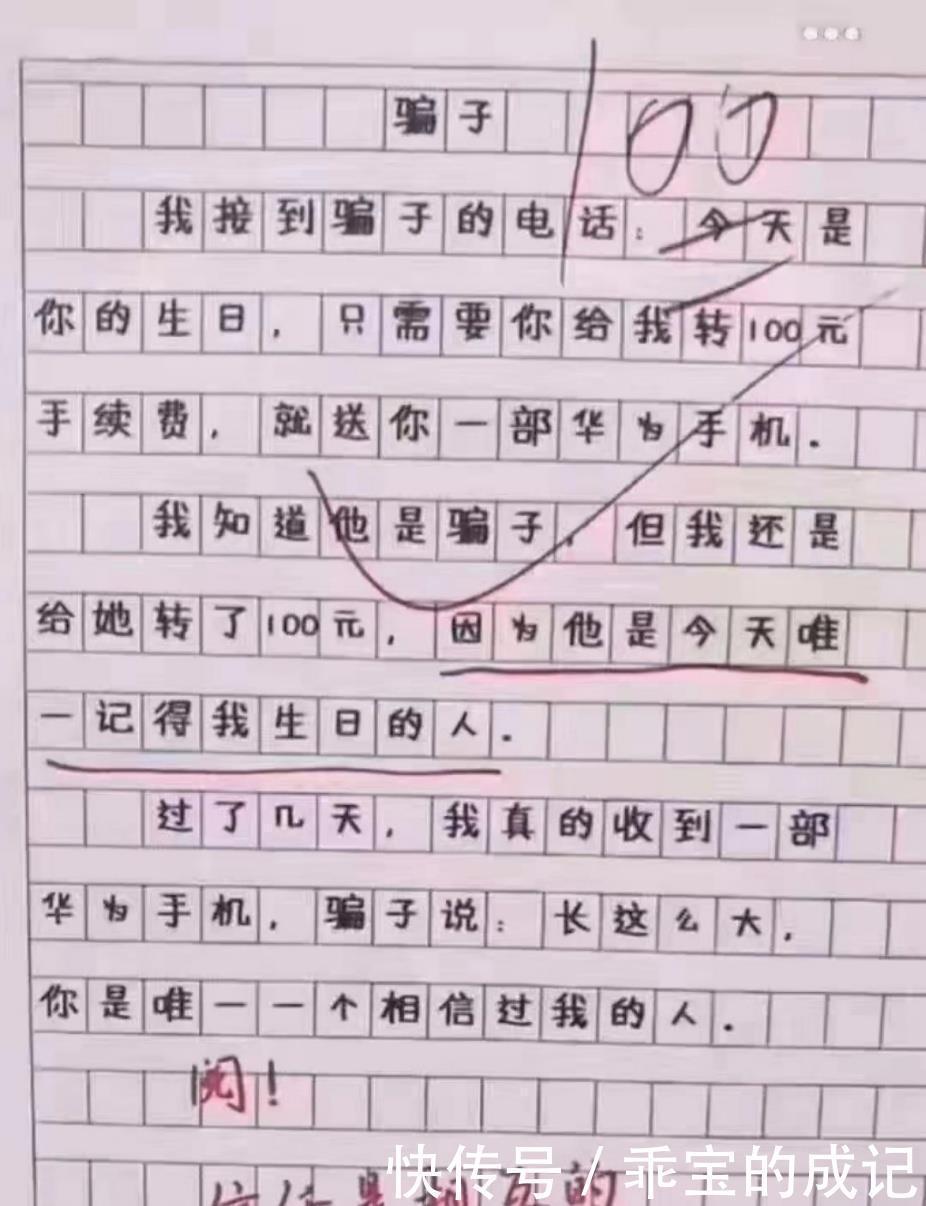 骗子
100
我接到骗子的电话：今天是
你的生日，只需要你给我转100元
手续费，就送你一部华为手机.
我知道他是骗子，但我还是
给她转了100元，因为他是今天唯
一记得我生日的人.
过了几天，我真的收到一部
华为手机，骗子说：长这么大，
你是唯一一个相信过我的人.
阅！
信任是相互的
快传号/乖宝的成记